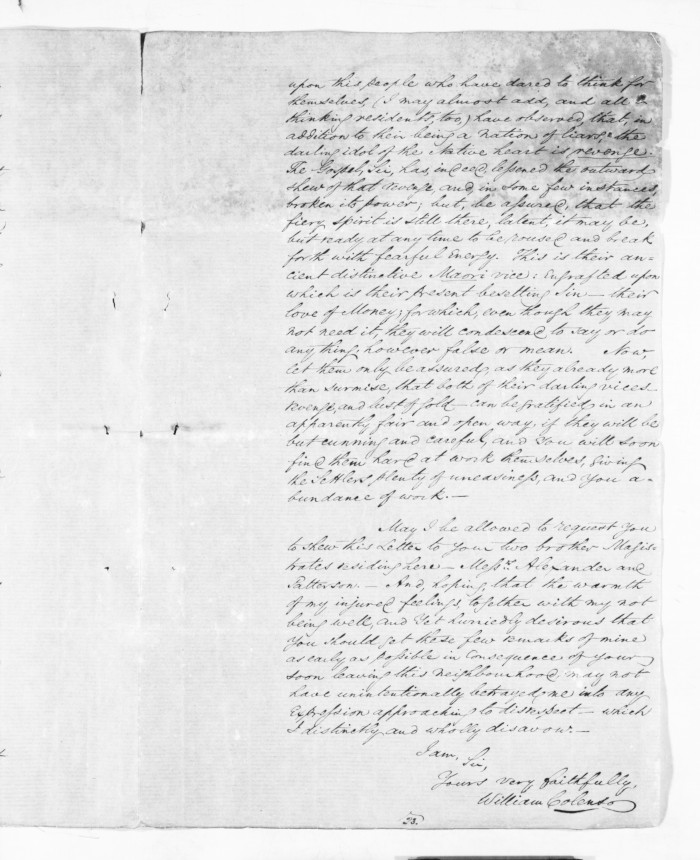 upon this people who have dared to think for
themselves, (I may almost add, and all
thinking residents, too,) have observed, that, in
addition to their being a nation of liars, the
darling idol of the Native heart is revenge.
The Gospel, Sir, has, indeed, lessened the outward
shew of that revenge, and, in some few instances,
broken its power; but, be assured, that the
fiery spirit is still there, latent, it may be,
but ready at any time to be roused and break
forth with fearful Energy. This is their an-
cient distinctive Maori vice: Engrafted upon
which is their present besetting Sin — their
love of Money; for which, even though they may
not need it, they will condescend to say or do
any thing, however false or mean. Now
let them only be assured, as they already more
than surmise, that both of their darling vices
revenge, and lust of Gold — can be gratified, in an
apparently fair and open way, if they will be
but cunning and careful, and You will soon
find them hard at work themselves, giving
the Settlers plenty of uneasiness, and you a-
bundance of work. —
May I be allowed to request You
to shew this Letter to Your two brother Magis-
trates residing here — Messrs. Alexander and
Patterson. — And, hoping, that the warmth
of my injured feelings, together with my not
being well, and Yet hurriedly desirous that
You should get these few remarks of mine
as early as possible in Consequence of Your
soon leaving this neighbourhood, may not
have unintentionally betrayed me into any
Expression approaching to disrespect — which
I distinctly and wholly disavow. —
I am,
Sir,
Yours very faithfully,
William Colenso